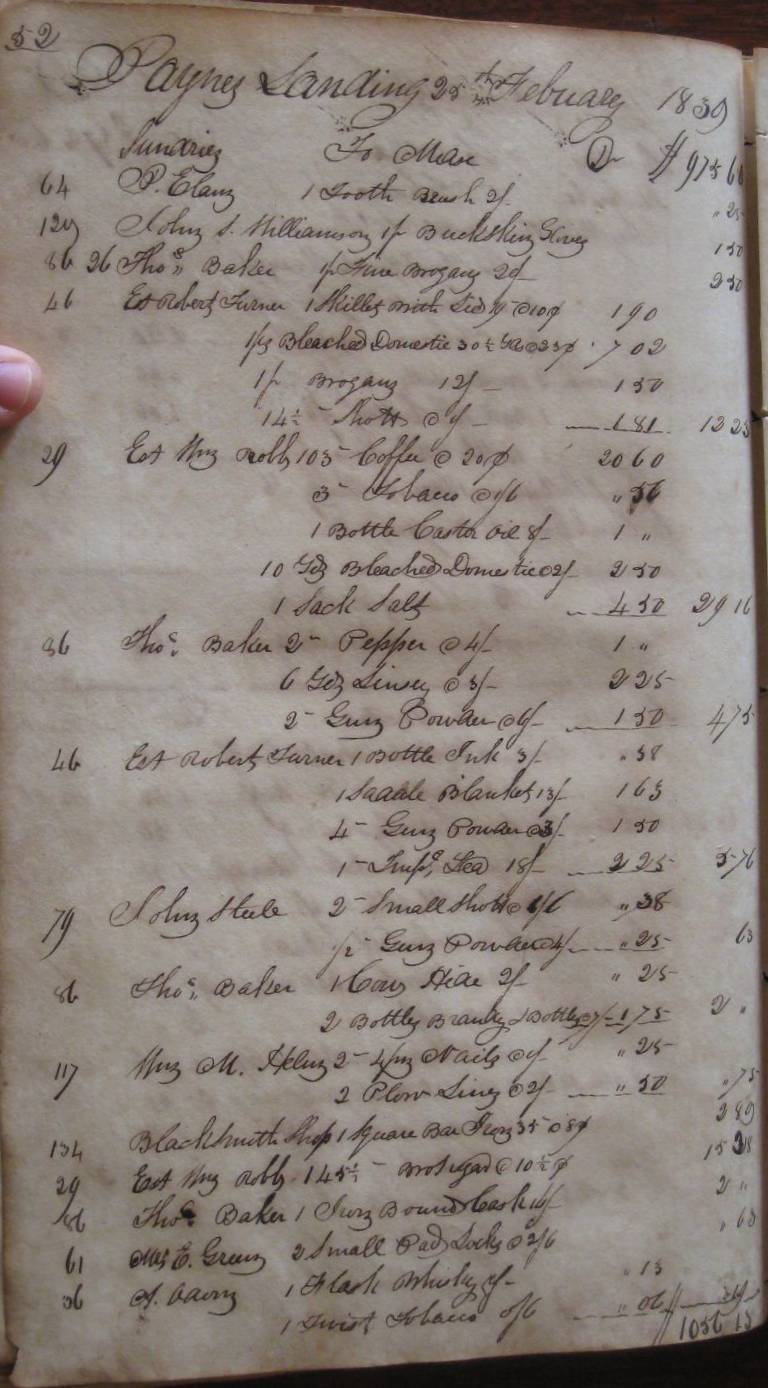 52
Paynes Landing 25th Febuary 1839
Sundries To Mdse Dr $975 60
64 P. Elam 1 Tooth Brush 2/- " 25
129 John S. Williamson 1 pr Buckskin Gloves 1 50
86 26 Thos. Baker 1 pr Fine Brogans 20/- 2 50
46 Est Robert Turner 1 Skillet with Lid 19 @ 10¢ 1 90
1 ps Bleached Domestic 30½ Yds @ 23¢ 7 02
1 pr Brogans 12/- 1 50
14½ - Shott @ 1/- 1 81 12 23
29 Est Wm Robb 103 - Coffee @ 20¢ 20 60
3 - Tobacco @ 1/6 " 56
1 Bottle Castor Oil 8/- 1 "
10 Yds Bleached Domestic @ 2/- 2 50
1 Sack Salt 4 50 29 16
86 Thos. Baker 2 - Pepper @ 4/- 1 "
6 Yds Linsey @ 3/- 2 25
2 - Gun Powder @ 6/- 1 50 4 75
46 Est Robert Turner 1 Bottle Ink 3/- " 38
1 Saddle Blanket 13/- 1 63
4 - Gun Powder @ 3/- 1 50
1 - Impl. Tea 18/- 2 25 5 76
79 John Steele 2 - Small Shott @ 1/6 " 38
1/2 - Gun Powder @ 4/- " 25 63
86 Thos. Baker 1 Cow Hide 2/- " 25
2 Bottles Brandy & Bottles @ 7/- 1 75 2 "
117 Wm M. Helm 2 - 4 pny Nails @ 1/- " 25
2 Plow Lines @ 2/- " 50 " 75
134 Blacksmith Shop 1 Square Bar Iron 35 @ 8¢ 2 89
29 Est Wm Robb 145½ - Bro Sugar @ 10½¢ 15 28
86 Thos. Baker 1 Iron Bound Cask 16/- 2 "
61 Mrs E. Green 2 Small Pad Locks @ 2/6 " 63
36 1 Flask Whisky 1/- " 13
1 Twist Tobacco 0/6 " 06 " 19
$1056 13